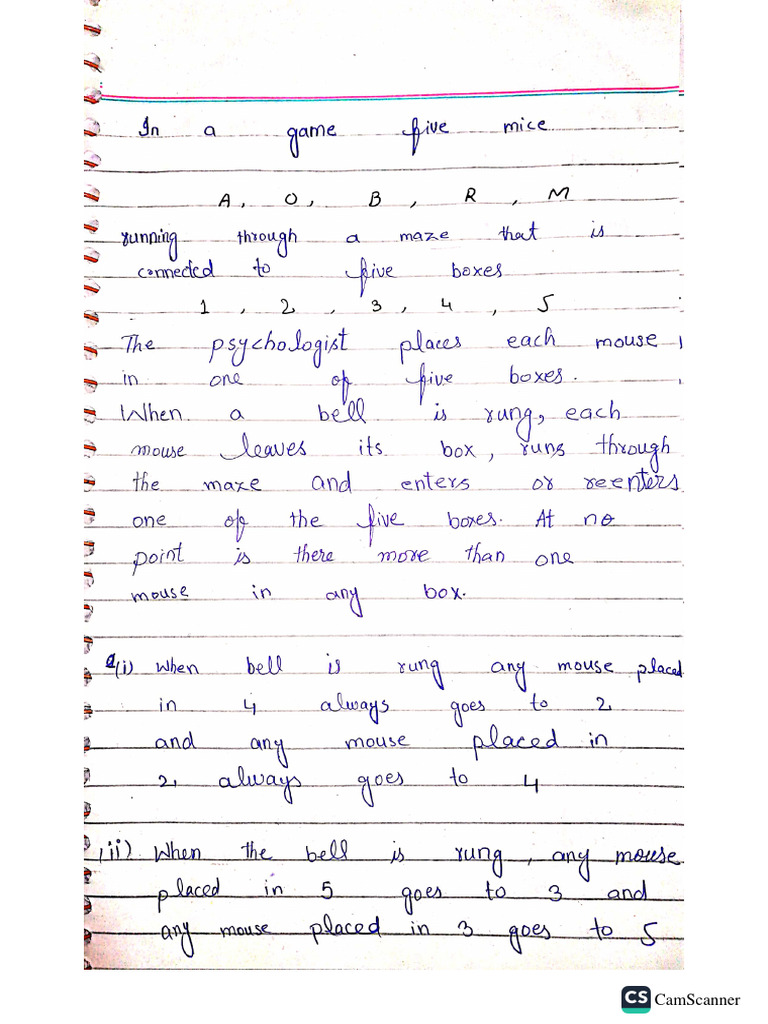 In a game five mice
A, O, B, R, M
running through a maze that is
connected to five boxes
1, 2, 3, 4, 5
The psychologist places each mouse
in one of five boxes.
When a bell is rung, each
mouse leaves its box, runs through
the maze and enters or reenters
one of the five boxes. At no
point is there more than one
mouse in any box.
(i) When bell is rung any mouse placed
in 4 always goes to 2
and any mouse placed in
2, always goes to 4
(ii) When the bell is rung, any mouse
placed in 5 goes to 3 and
any mouse placed in 3 goes to 5
CS CamScanner